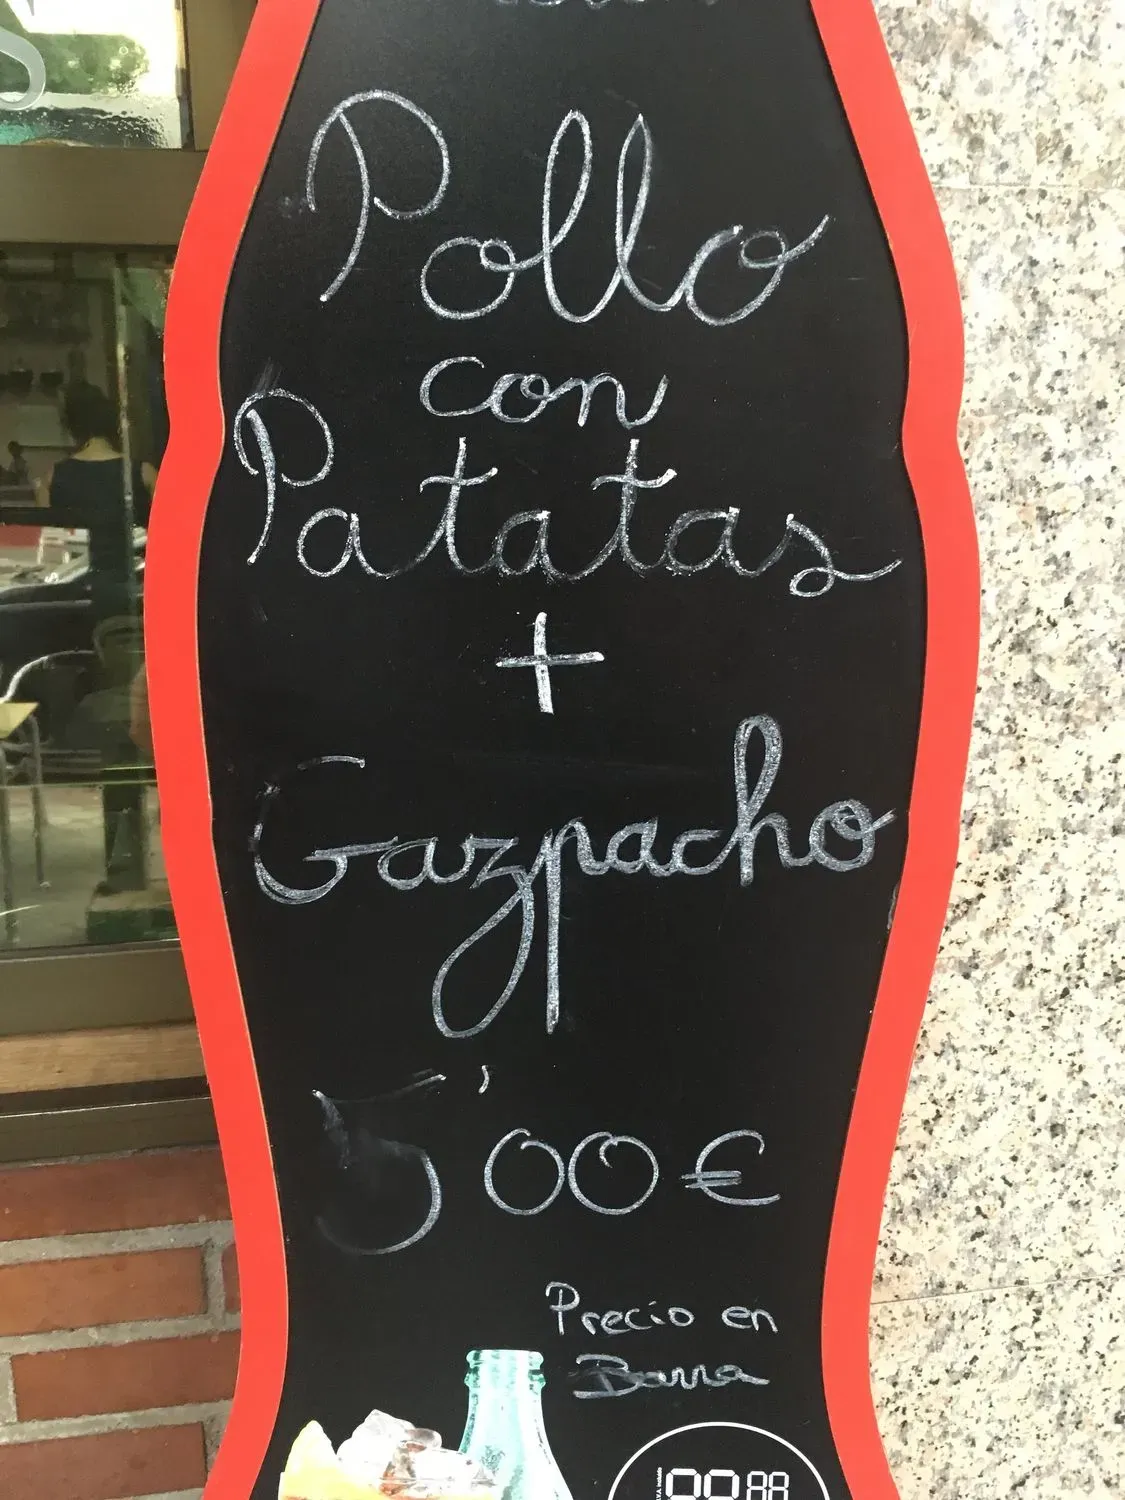 Pollo
con
Patatas
+
Gazpacho
5'00€
Precio en
Barra